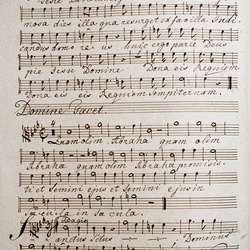 mosa dies illa qua resurget ex favilla Judi
candus homo re us huic ergo parce Deus
pie Jesu Domine Dona eis Requiem
Dona eis eis Requiem sempiternam.
Domine Tacet.
Quam olim Abraha quam olim
Abraha quam olim Abraha promisisti
ti et semini ejus et semini ejus in
saecula in saecula.
Adagio
Sanctus Sctus Dominus